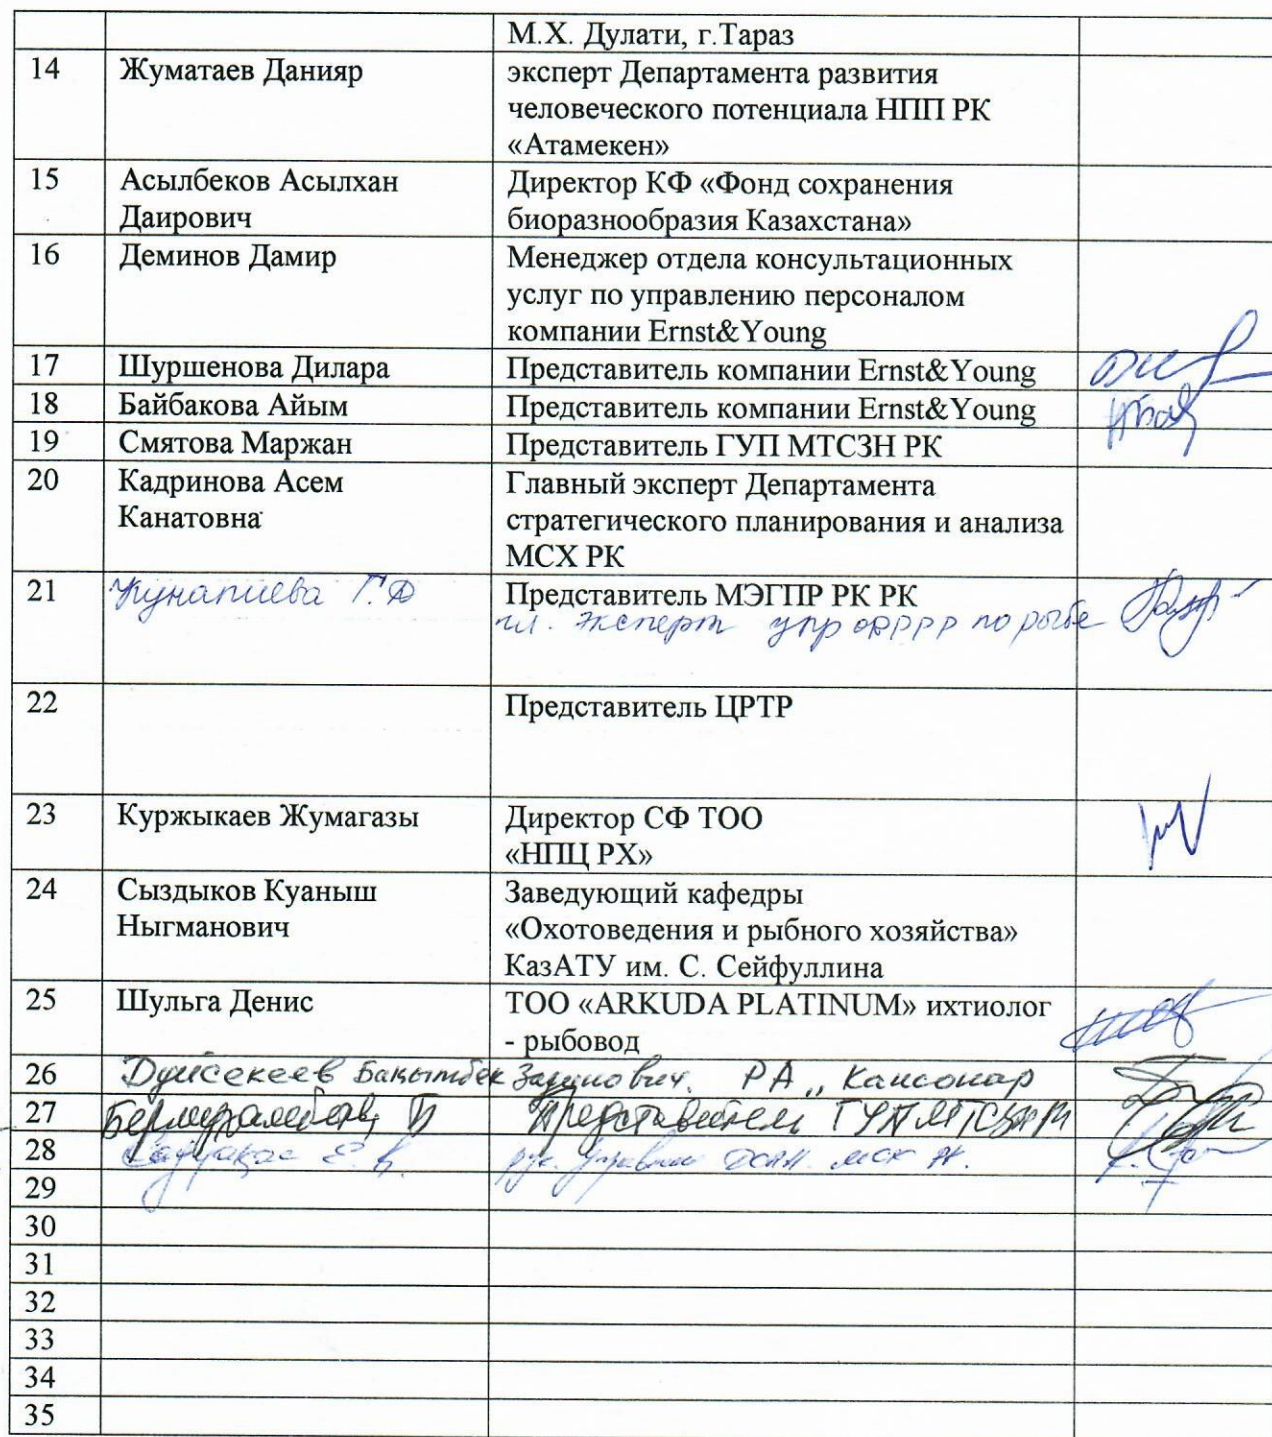 М.Х. Дулати, г.Тараз
14 Жуматаев Данияр эксперт Департамента развития
человеческого потенциала НПП РК
«Атамекен»
15 Асылбеков Асылхан Директор КФ «Фонд сохранения
Даирович биоразнообразия Казахстана»
16 Деминов Дамир Менеджер отдела консультационных
услуг по управлению персоналом
компании Ernst&Young
17 Шуршенова Дилара Представитель компании Ernst&Young
18 Байбакова Айым Представитель компании Ernst&Young
19 Смятова Маржан Представитель ГУП МТСЗН РК
20 Кадринова Асем Главный эксперт Департамента
Канатовна стратегического планирования и анализа
МСХ РК
21 Представитель МЭГПР РК РК
гл. эксперт упр по рыбе
22 Представитель ЦРТР
23 Куржыкаев Жумагазы Директор СФ ТОО
«НПЦ РХ»
24 Сыздыков Куаныш Заведующий кафедры
Ныгманович «Охотоведения и рыбного хозяйства»
КазАТУ им. С. Сейфуллина
25 Шульга Денис ТОО «ARKUDA PLATINUM» ихтиолог
- рыбовод
26 Дуйсекеев Бакытбек РА „Кансонар
27 Представитель
28
29
30
31
32
33
34
35